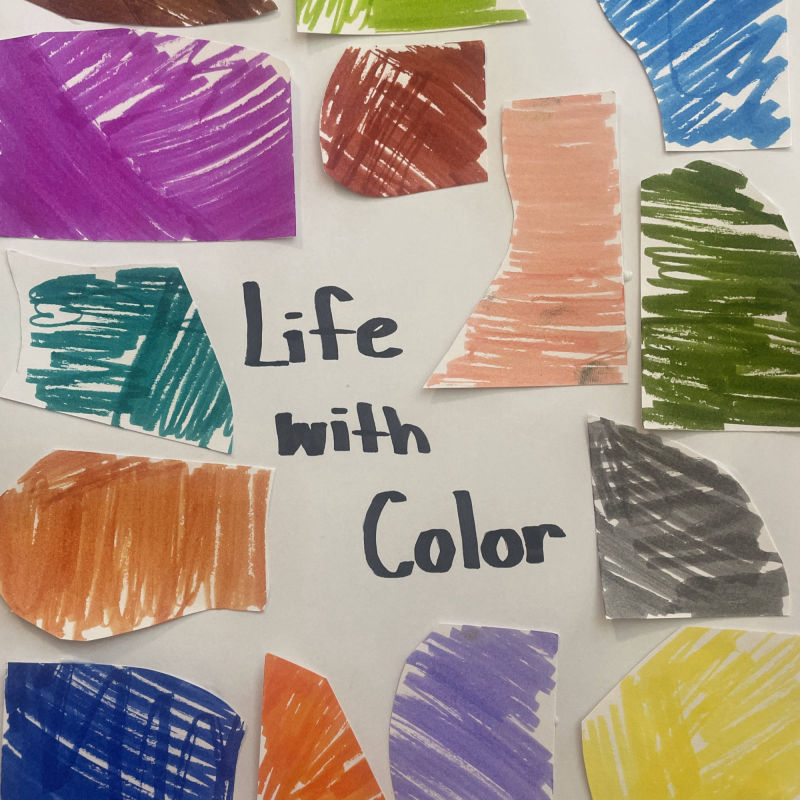 Life
with
Color